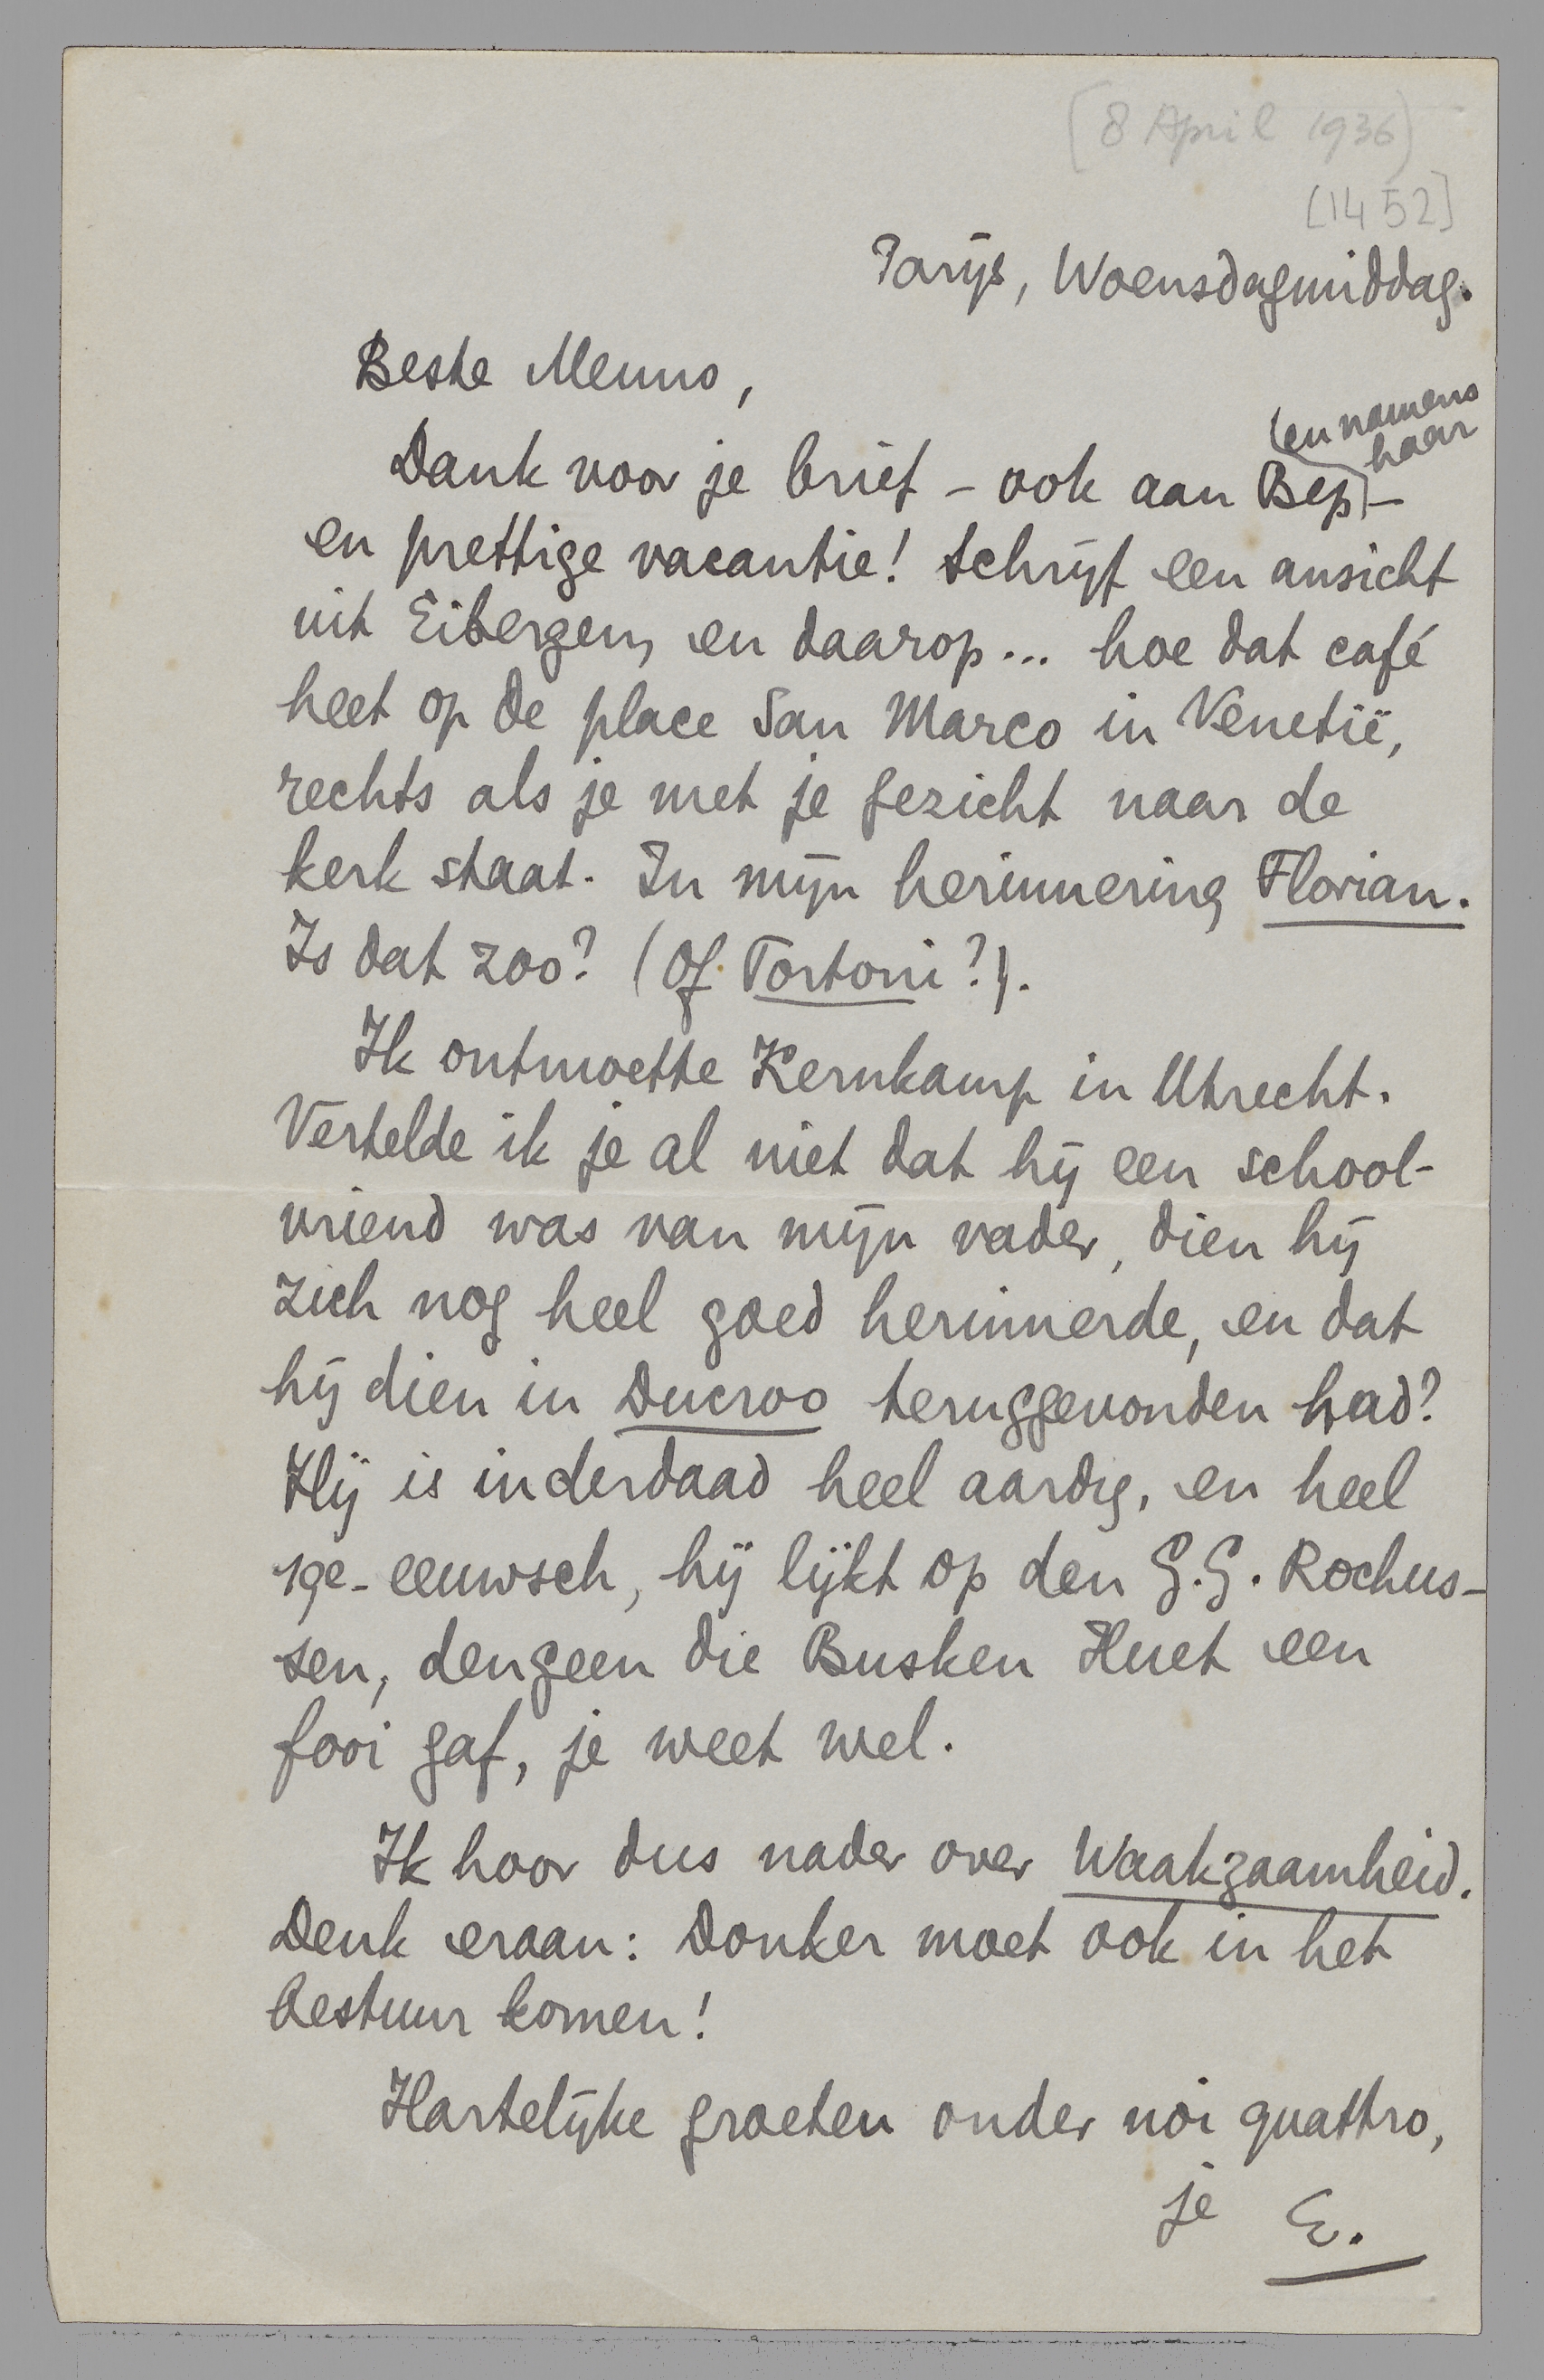 [8 April 1936]
[1452]
Parijs, Woensdagmiddag.
Beste Menno,
(en namens haar
Dank voor je brief – ook aan Bep) –
en prettige vacantie! Schrijf een ansicht
uit Eibergen, en daarop... hoe dat café
heet op de place San Marco in Venetië,
rechts als je met je gezicht naar de
kerk staat. In mijn herinnering Florian.
Is dat zoo? (Of Tortoni?).
Ik ontmoette Kernkamp in Utrecht.
Vertelde ik je al niet dat hij een school-
vriend was van mijn vader, dien hij
zich nog heel goed herinnerde, en dat
hij dien in Ducroo teruggevonden had?
Hij is inderdaad heel aardig, en heel
19e-eeuwsch, hij lijkt op den G.G. Rochus-
sen, dengeen die Busken Huet een
fooi gaf, je weet wel.
Ik hoor dus nader over Waakzaamheid.
Denk eraan: Donker moet ook in het
bestuur komen!
Hartelijke groeten onder noi quattro,
je E.